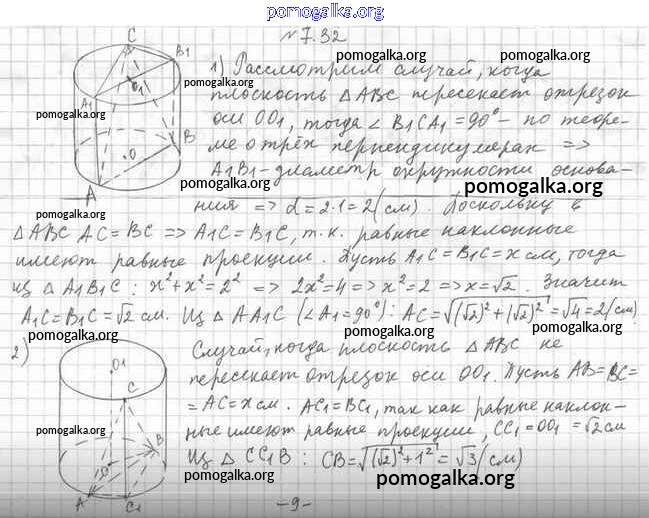 pomogalka.org
№7.32
1) Рассмотрим случай, когда
плоскость △ABC пересекает отрезок
оси OO₁, тогда ∠B₁CA₁=90° - по теоре-
ме о трёх перпендикулярах =>
A₁B₁ - диаметр окружности основа-
ния => d=2·1=2(см). Поскольку в
△ABC AC=BC => A₁C=B₁C, т.к. равные наклонные
имеют равные проекции. Пусть A₁C=B₁C=x см, тогда
из △A₁B₁C: x²+x²=2² => 2x²=4 => x²=2 => x=√2. Значит
A₁C=B₁C=√2 см. Из △AA₁C (∠A₁=90°): AC=√((√2)²+(√2)²)=√4=2(см)
2) Случай, когда плоскость △ABC не
пересекает отрезок оси OO₁. Пусть AB=BC=
=AC=x см. AC₁=BC₁, так как равные наклон-
ные имеют равные проекции, CC₁=OO₁=√2 см
Из △CC₁B: CB=√((√2)²+1²)=√3(см)
-9-
C
B₁
O₁
A₁
O
B
A
O₁
C
B
O
A
C₁
pomogalka.org
pomogalka.org
pomogalka.org
pomogalka.org
pomogalka.org
pomogalka.org
pomogalka.org
pomogalka.org
pomogalka.org
pomogalka.org
pomogalka.org
pomogalka.org
pomogalka.org
pomogalka.org